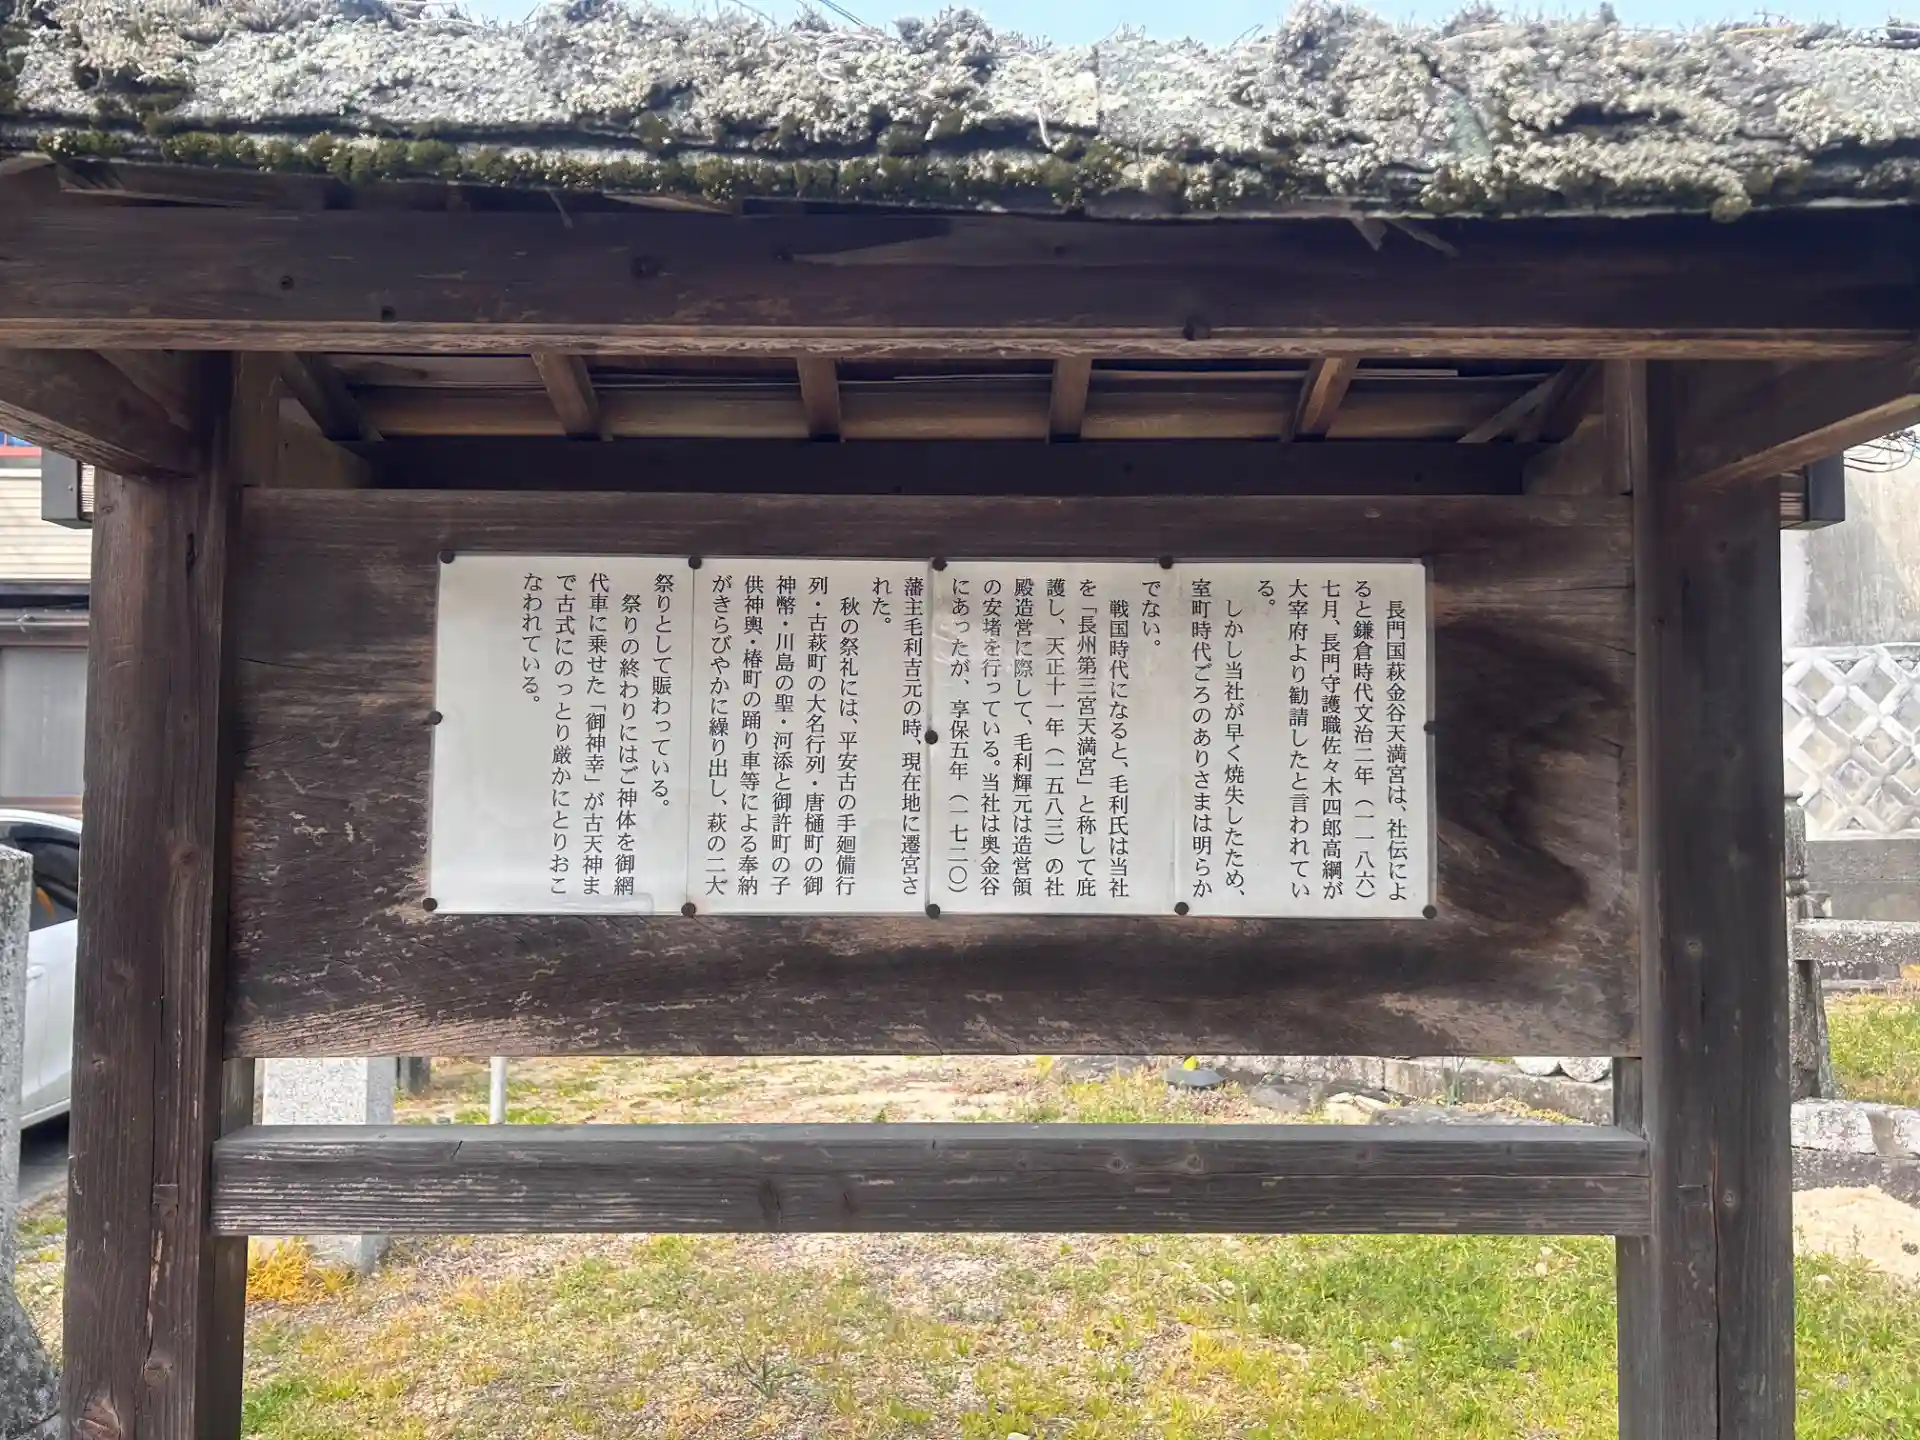 長門国萩金谷天満宮は、社伝によ
ると鎌倉時代文治二年（一一八六）
七月、長門守護職佐々木四郎高綱が
大宰府より勧請したと言われてい
る。
しかし当社が早く焼失したため、
室町時代ごろのありさまは明らか
でない。
戦国時代になると、毛利氏は当社
を「長州第三宮天満宮」と称して庇
護し、天正十一年（一五八三）の社
殿造営に際して、毛利輝元は造営領
の安堵を行っている。当社は奥金谷
にあったが、享保五年（一七二〇）
藩主毛利吉元の時、現在地に遷宮さ
れた。
秋の祭礼には、平安古の手廻備行
列・古萩町の大名行列・唐樋町の御
神幣・川島の聖・河添と御許町の子
供神輿・椿町の踊り車等による奉納
がきらびやかに繰り出し、萩の二大
祭りとして賑わっている。
祭りの終わりにはご神体を御網
代車に乗せた「御神幸」が古天神ま
で古式にのっとり厳かにとりおこ
なわれている。